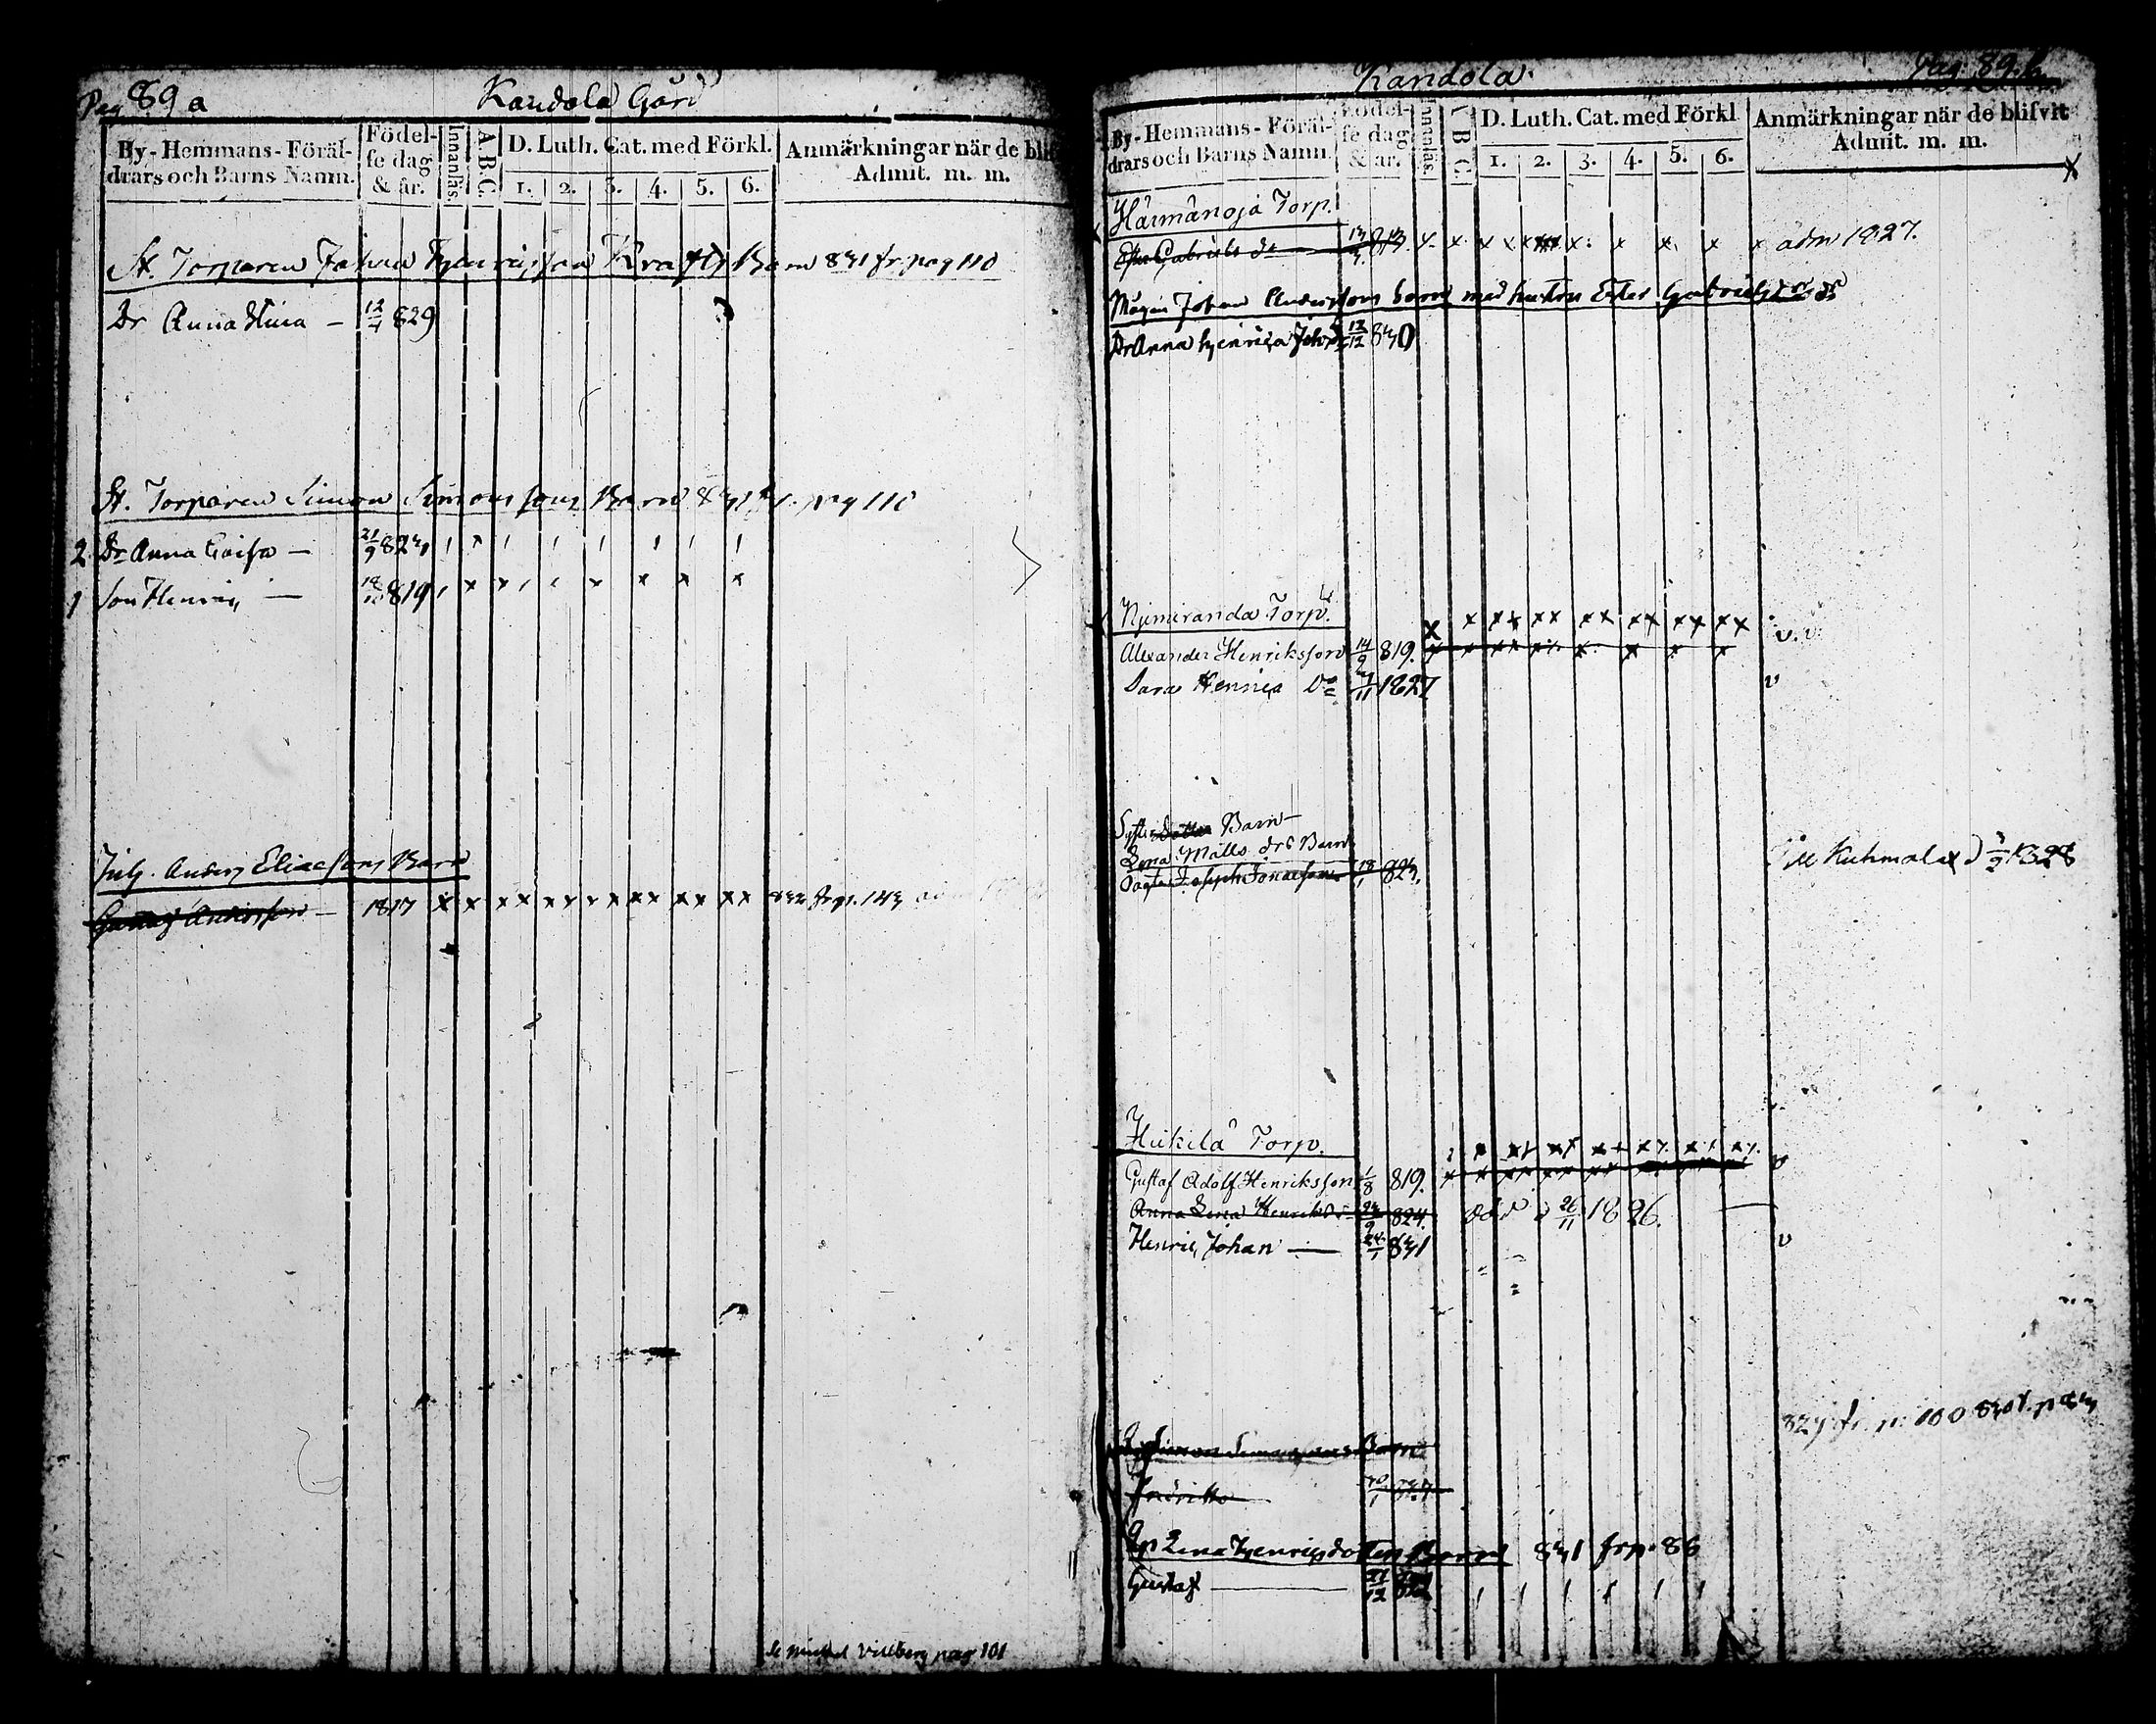 Pag 89 a
Kandola Gård
By-Hemmans-Föräl-
drars och Barns Namn.
Födel-
se dag
& år.
Innanläs.
A.B.C.
D. Luth. Cat. med Förkl.
1. 2. 3. 4. 5. 6.
Anmärkningar när de blif
Admit. m. m.
St. Torparen Johan Henricsson Krafts Barn 831 fr. pag 110
Dr Anna Stina — 12/4 829
St. Torparen Simon Simonssons Barn 831 fr. pag 110
2 Dr Anna Caisa — 21/9 824
1 Son Henric — 18/10 819
Inh. Anders Eliaessons Barn
Andersson — 1817 x x x x x x x x x x x x x x 832 fr p. 143
Se Michel Villberg pag 101
Kandola.
Pag. 89. b.
By-Hemmans-Föräl-
drars och Barns Namn.
Födel-
se dag
& år.
Innanläs.
A B C
D. Luth. Cat. med Förkl
1. 2. 3. 4. 5. 6.
Anmärkningar när de blifvit
Admit. m. m.
Härmänoja Torp.
Ester Gabriels dr adm 1827.
Mågen Johan Anderssons barn med hustru Ester Gabriels dr
Dr Anna Henrica 12/12 840
Njemiranda Torp.
Alexander Henriksson 14/9 819. v. v.
Sara Henrica Dr /11 1827 v
Syster Dotter Barn
Lena Matts drs Barn
Joseph Jonaesson 18/1 823. Till Kuhmalax d 1828
Huikila Torp.
Gustaf Adolf Henriksson 1/8 819. v
Anna Lena Henriksdr 24/9 824. död d 26/11 1826.
Henric Johan — 24/1 831 v
Simon Barn
829 fr. p. 100
Fredrika
Lena Henricsdotters Barn 831 fr p. 86
Gustaf — 21/12